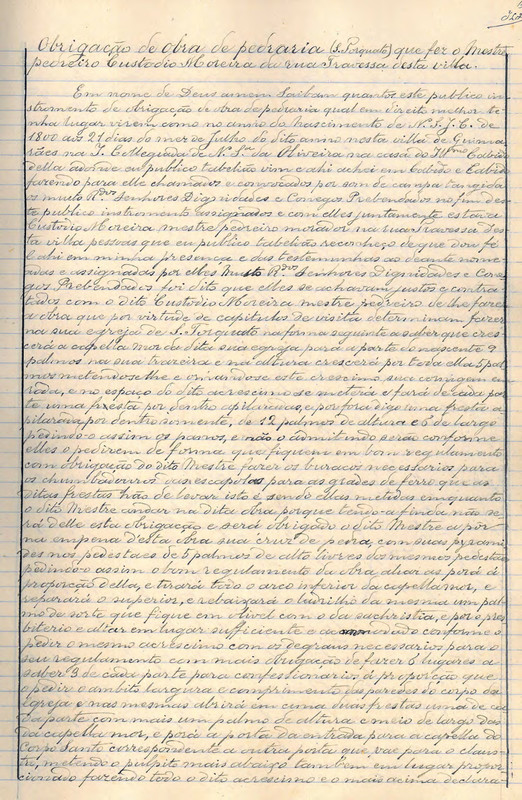 Obrigação de obra de pedraria (S. Torquato) que fez o Mestre
pedreiro Custodio Moreira da rua Travessa desta villa.
Em nome de Deus amen Saibam quantos este publico in
stromento de obrigação de obra de pedraria qual em direito melhor te
nha lugar virem como no anno do Nascimento de N. S. J. C. de
1800 aos 21 dias do mez de Julho do dito anno nesta villa de Guima
rães na I. Collegiada de N. Srª da Oliveira na casa do Illmo Cabido
della adonde eu publico tabelião vim e ahi achei em Cabido e Cabido
fazendo para elle chamados e convocados por som de campa tangida
os muito Rdos Senhores Dignidades e Conegos Prebendados no fim des
te publico instromento assignados e com elles juntamente estava
Custodio Moreira mestre pedreiro morador na rua Travessa des
ta villa pessoas que eu publico tabelião reconheço de que dou fé
e ahi em minha presença e das testemunhas ao deante nome
adas e assignadas por elles muito Rdos Senhores Dignidades e Cone
gos Prebendados foi dito que elles se achavam justos e contra
tados com o dito Custodio Moreira mestre pedreiro de lhe fazer
a obra que por virtude de capitulos de visita determinam fazer
na sua egreja de S. Torquato na forma seguinte a saber que cres
cerá a capella mór da dita sua egreja para a parte do nascente 9
palmos na sua trazeira e na altura crescerá por toda ella 5 pal
mos mettendo-se-lhe e ornando-se este crescimo sua cornigem em
roda, e no espaço do dito acrescimo se metterá e fará de cada par
te uma fresta por dentro apilaradas, e por fora digo uma fresta a
pilarada por dentro somente, de 12 palmos de altura e 6 de largo
pedindo-o assim os panos, e não o admitindo serão conforme
elles o pedirem de forma que fiquem em bom regulamento
com obrigação do dito Mestre fazer os buracos necessarios para
os chumbadouros das escapolas para as grades de ferro que as
ditas frestas hão de levar isto é sendo ellas metidas emquanto
o dito Mestre andar na dita obra porque tendo-a finda não se
rá delle esta obrigação e será obrigado o dito Mestre a pôr
na empena d'esta obra sua cruz de pedra, com suas pyrami
des nos pedestaes de 5 palmos de alto livres dos mesmos pedestaes
pedindo-o assim o bom regulamento da obra alias as porá á
proporção della, e tirará todo o arco inferior da capella mór, e
reparará o superior, e rebaixará o ladrilho da mesma um pal
mo de sorte que fique em nivel com o da sachristia, e porá pres
biterio e altar em lugar sufficiente e accomodado conforme o
pedir o mesmo acrescimo com os degraus necessarios para o
seu regulamento com mais obrigação de fazer 6 lugares a
saber 3 de cada parte para confessionarios á proporção que
o pedir o ambito largura e comprimento das paredes do corpo da
egreja e nas mesmas abrirá em cima duas frestas uma de ca
da parte com mais um palmo de altura e meio de largo das
da capella mór, e porá a porta da entrada para a capella do
Corpo Santo correspondente a outra porta que vae para o claus
tro, mettendo o pulpito mais abaixo tambem em lugar propor
cionado fazendo todo o dito acrescimo e o mais acima declara